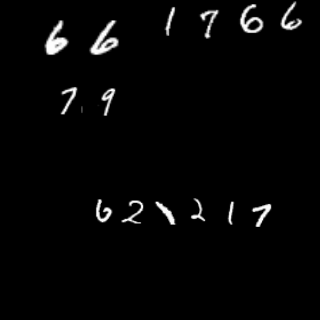 66
1766
79
621217